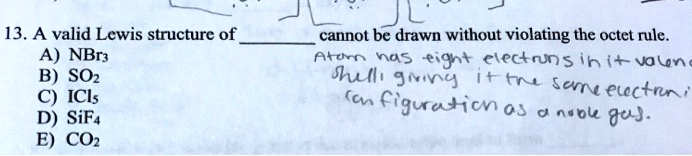 13. A valid Lewis structure of ________ cannot be drawn without violating the octet rule.
A) NBr3 Atom has eight electrons in it valen
B) SO2 Shell, giving it the same electroni
C) ICl5 configuration as a noble gas.
D) SiF4
E) CO2